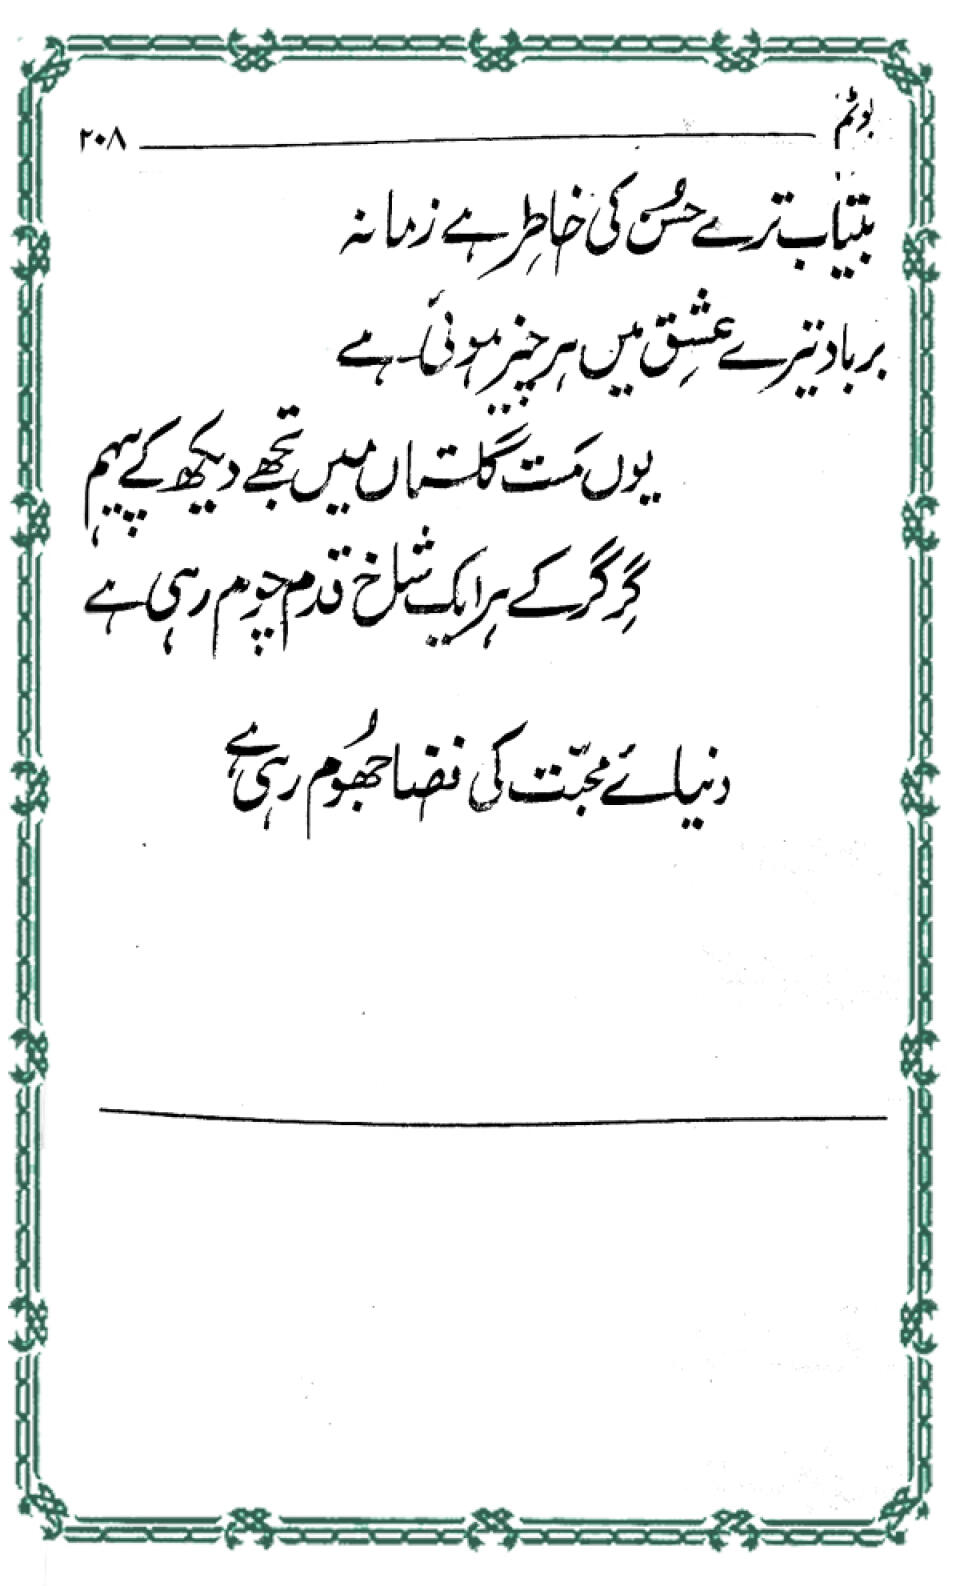 بوٹم ۲۰۸
بیتاب ترے حُسن کی خاطِر ہے زمانہ
برباد تیرے عشِق میں ہر چیز ہوئی ہے
یوں مَست گلستاں میں تجھے دیکھ کے پیہم
گِر گر کے ہر ایک شاخ قدم چوم رہی ہے
دنیائے محبّت کی فضا جھُوم رہی ہے